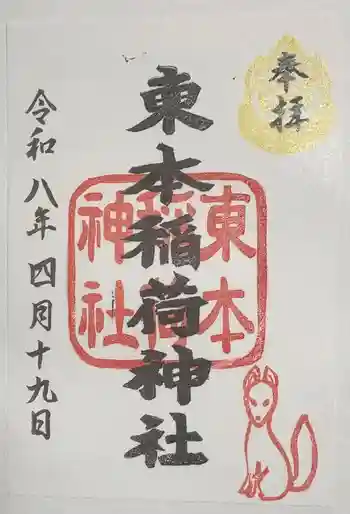 奉拝
東本稲荷神社
東本
稲荷
神社
令和八年四月十九日